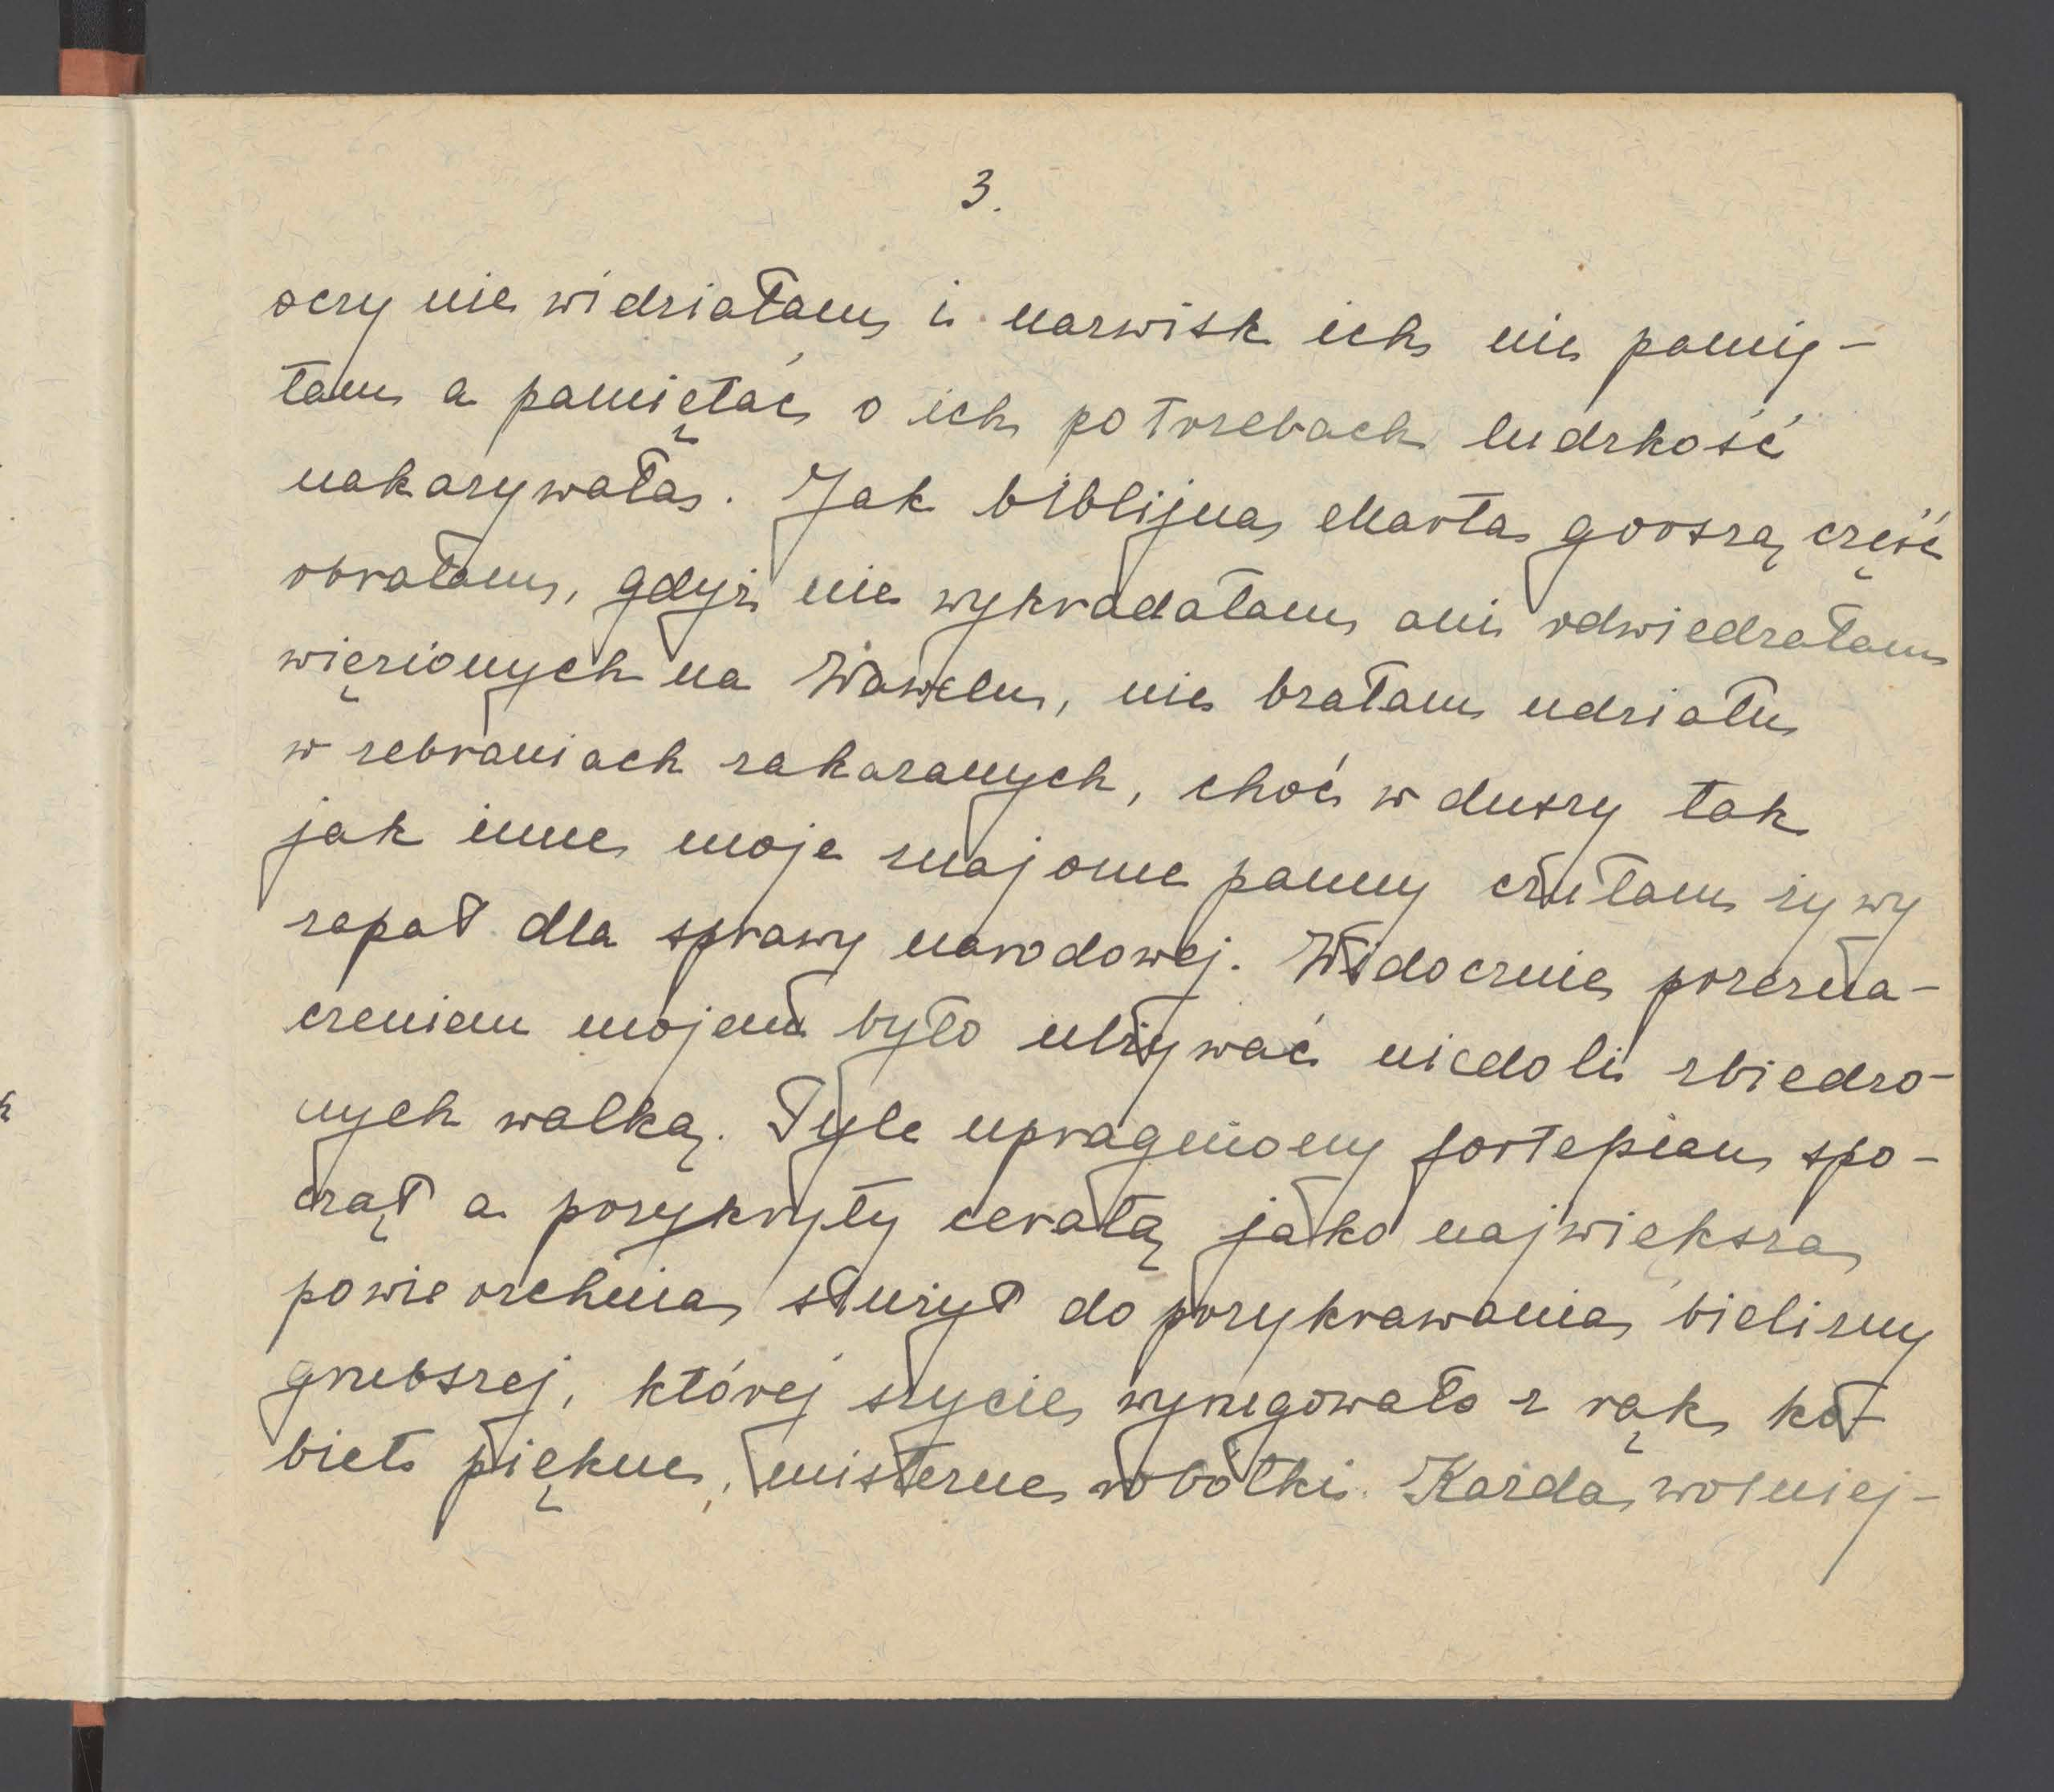 3.
oczy nie widziałam i nazwisk ich nie pamię-
tam a pamiętać o ich potrzebach ludzkość
nakazywała. Jak biblijna Marta gorszą część
obrałam, gdyż nie wykradałam ani odwiedzałam
więzionych na Wawelu, nie brałam udziału
w zebraniach zakazanych, choć w duszy tak
jak inne moje znajome panny czułam żywy
zapał dla sprawy narodowej. Widocznie przezna-
czeniem mojem było ulżywać niedoli zbiedzo-
nych walką. Tyle upragniony fortepian spo-
czął a przykryty ceratą jako największa
powierzchnia służył do przykrawania bielizny
grubszej, której szycie wyrugowało z rąk ko-
biet piękne, misterne robótki. Każda wolniej-
k